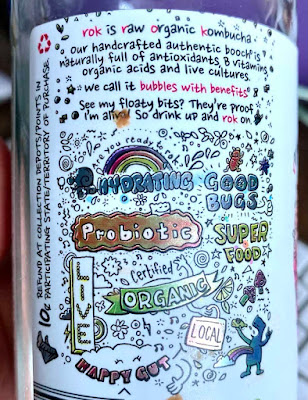 rok is raw organic kombucha
Our handcrafted authentic booch is
naturally full of antioxidants, B vitamins,
organic acids and live cultures.
we call it bubbles with benefits
See my floaty bits? They're proof
I'm alive! So drink up and rok on.
are you ready to rok
HYDRATING
GOOD
BUGS
Probiotic
SUPER
FOOD
LIVE
Certified
ORGANIC
LOCAL
HAPPY GUT
10¢ REFUND AT COLLECTION DEPOTS/POINTS IN
PARTICIPATING STATE/TERRITORY OF PURCHASE.